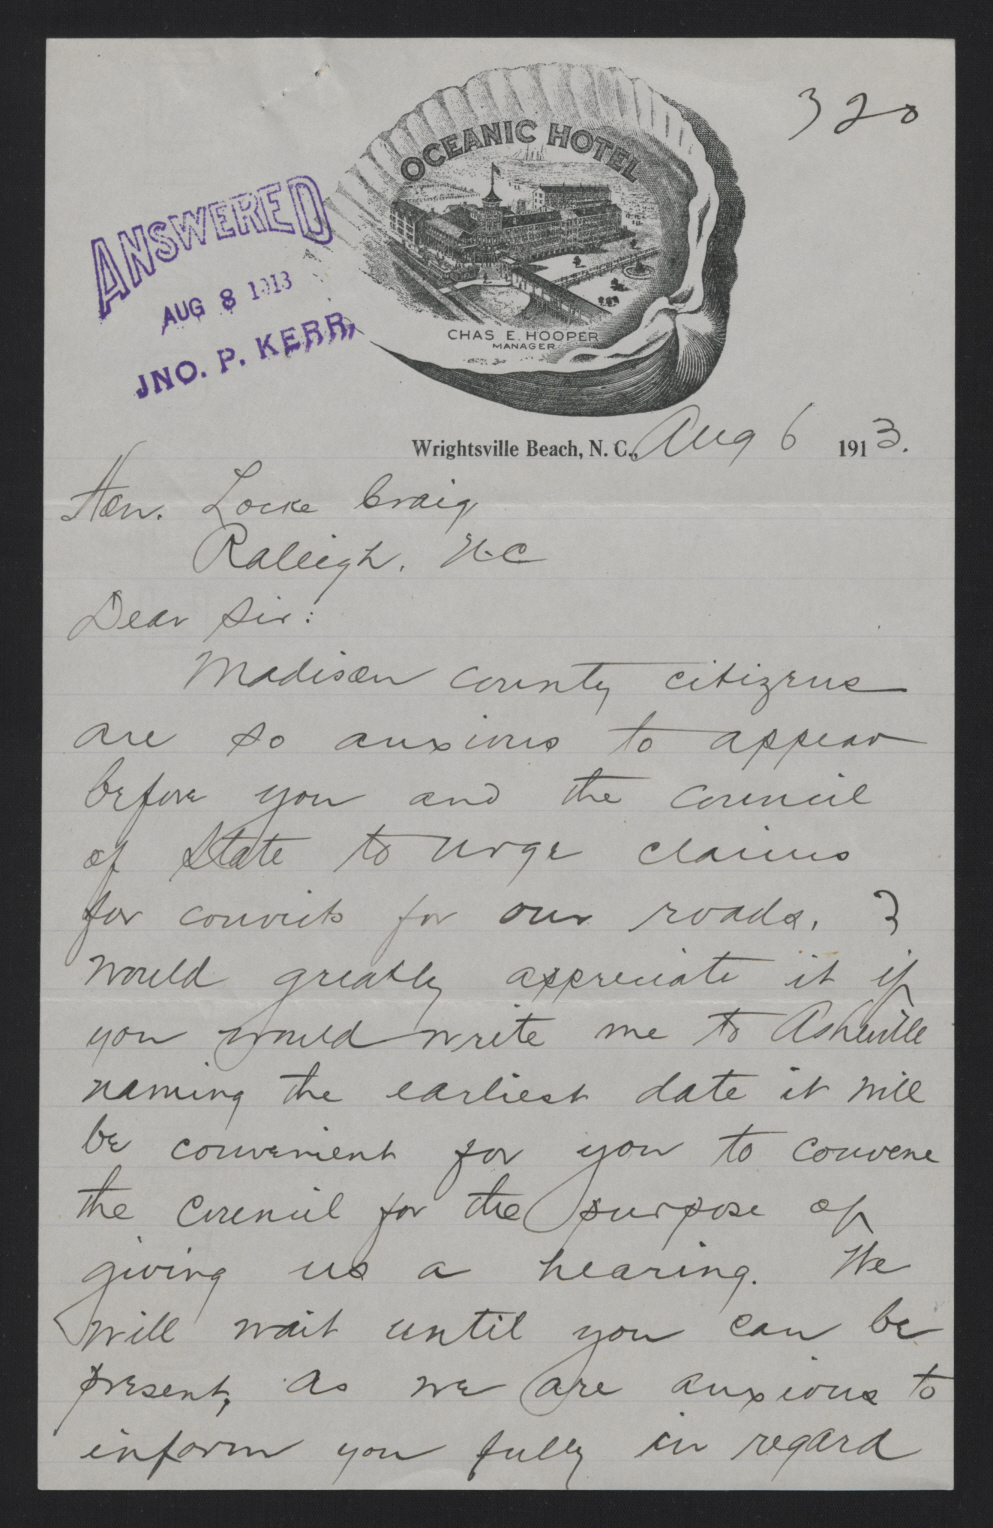 320
OCEANIC HOTEL
CHAS E. HOOPER
MANAGER
ANSWERED
AUG 8 1913
JNO. P. KERR,
Wrightsville Beach, N. C., Aug 6 1913.
Hon. Locke Craig
Raleigh, N-C
Dear Sir:
Madison county citizens
are so anxious to appear
before you and the council
of State to urge claims
for convicts for our roads. I
would greatly appreciate it if
you would write me to Asheville
naming the earliest date it will
be convenient for you to convene
the council for the purpose of
giving us a hearing. We
will wait until you can be
present, as we are anxious to
inform you fully in regard